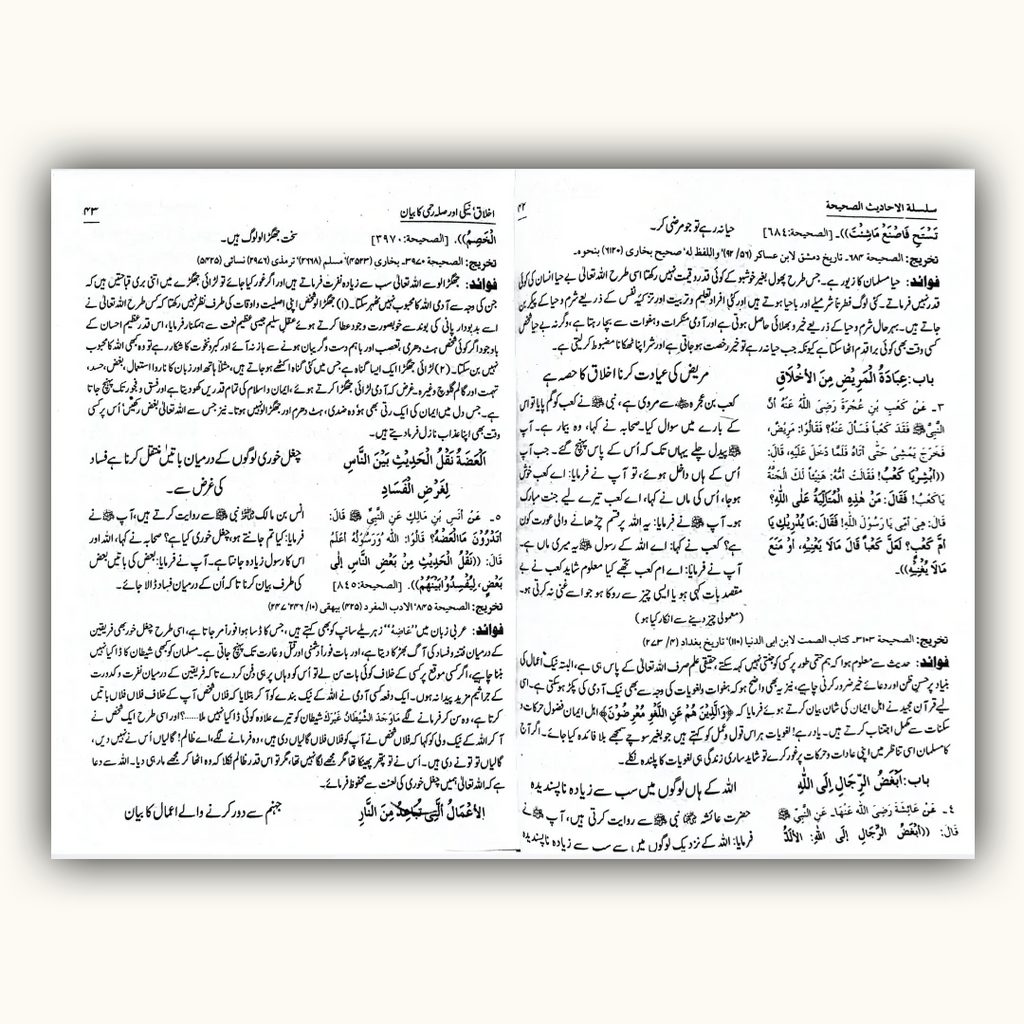 سلسلة الاحاديث الصحيحة ۴۲
تَسْتَحِ فَاصْنَعْ مَاشِئْتَ)). [الصحيحة:٦٨٤]
حیا نہ رہے تو جو مرضی کر۔
تخریج: الصحيحة ۶۸۴۔ تاريخ دمشق لابن عساكر (۵۶/ ۹۲) واللفظ له؛ صحيح بخاری (۶۱۲۰) بنحوه۔
فوائد: حیا مسلمان کا زیور ہے۔ جس طرح پھول بغیر خوشبو کے کوئی قدر وقیمت نہیں رکھتا اسی طرح اللہ تعالیٰ بے حیا انسان کی کوئی
قدر نہیں فرماتے۔ کئی لوگ فطرتاً شرمیلے اور باحیا ہوتے ہیں اور کئی افراد تعلیم و تربیت اور تزکیہ نفس کے ذریعے شرم و حیا کے پیکر بن
جاتے ہیں۔ بہرحال شرم و حیا کے ذریعے خیر و بھلائی حاصل ہوتی ہے اور آدمی منکرات و ہفوات سے بچا رہتا ہے، وگرنہ بے حیا شخص
کسی وقت بھی کوئی برا قدم اٹھا سکتا ہے کیونکہ جب حیا نہ رہے تو خیر رخصت ہو جاتی ہے اور شر اپنا ٹھکانا مضبوط کر لیتی ہے۔
باب: عِيَادَةُ الْمَرِيْضِ مِنَ الْأَخْلَاقِ
مریض کی عیادت کرنا اخلاق کا حصہ ہے
۳۔ عَنْ كَعْبِ بْنِ عُجْرَةَ رَضِيَ اللّٰهُ عَنْهُ أَنَّ
النَّبِيَّ ﷺ فَقَدَ كَعْباً فَسَأَلَ عَنْهُ؟ فَقَالُوْا: مَرِيْضٌ،
فَخَرَجَ يَمْشِيْ حَتّٰى أَتَاهُ فَلَمَّا دَخَلَ عَلَيْهِ، قَالَ:
((أَبْشِرْ يَا كَعْبُ! فَقَالَتْ أُمُّهُ: هَنِيْئاً لَكَ الْجَنَّةُ
يَا كَعْبُ! فَقَالَ: مَنْ هٰذِهِ الْمُتَأَلِّيَةُ عَلَى اللّٰهِ؟
قَالَ: هِيَ أُمِّيْ يَا رَسُوْلَ اللّٰهِ! فَقَالَ: مَا يُدْرِيْكِ يَا
أُمَّ كَعْبٍ؟ لَعَلَّ كَعْباً قَالَ مَالَا يَعْنِيْهِ، أَوْ مَنَعَ
مَالَا يُغْنِيْهِ)).
کعب بن عجرہ سے مروی ہے، نبی ﷺ نے کعب کو گم پایا تو اس
کے بارے میں سوال کیا۔ صحابہ نے کہا، وہ بیمار ہے۔ آپ
ﷺ پیدل چلے یہاں تک کہ اُس کے پاس پہنچ گئے۔ جب آپ
اُس کے ہاں داخل ہوئے، تو آپ نے فرمایا: اے کعب خوش
ہوجا، اُس کی ماں نے کہا، اے کعب تیرے لیے جنت مبارک
ہو۔ آپ ﷺ نے فرمایا: یہ اللہ پر قسم چڑھانے والی عورت کون
ہے؟ کعب نے کہا: اے اللہ کے رسول ﷺ یہ میری ماں ہے۔
آپ نے فرمایا: اے ام کعب تجھے کیا معلوم شاید کعب نے بے
مقصد بات کہی ہو یا ایسی چیز سے روکا ہو جو اسے غنی نہ کرتی ہو۔
(معمولی چیز دینے سے انکار کیا ہو)
تخریج: الصحيحة ۳۱۰۳۔ كتاب الصمت لابن ابی الدنيا (۱۱۰)؛ تاریخ بغداد (۴/ ۲۷۳)
فوائد: حدیث سے معلوم ہوا کہ ہم حتمی طور پر کسی کو جنتی نہیں کہہ سکتے، حقیقی علم صرف اللہ تعالیٰ کے پاس ہی ہے، البتہ نیک اعمال کی
بنیاد پر حسن ظن اور دعائے خیر ضرور کرنی چاہیے، نیز یہ بھی واضح ہو کہ ہفوات و لغویات کی وجہ سے بھی نیک آدمی کی پکڑ ہو سکتی ہے۔ اسی
لیے قرآن مجید نے اہل ایمان کی شان بیان کرتے ہوئے فرمایا کہ ﴿وَالَّذِيْنَ هُمْ عَنِ اللَّغْوِ مُعْرِضُوْنَ﴾ اہل ایمان فضول حرکات و
سکنات سے مکمل اجتناب کرتے ہیں۔ یاد رہے! لغویات ہر اس قول و عمل کو کہتے ہیں جو بغیر سوچے سمجھے بلا فائدہ کیا جائے۔ اگر آج
کا مسلمان اسی تناظر میں اپنی عادات و حرکات پر غور کرے تو شاید ساری زندگی ہی لغویات کا پلندہ نکلے۔
باب: أَبْغَضُ الرِّجَالِ إِلَى اللّٰهِ
اللہ کے ہاں لوگوں میں سب سے زیادہ ناپسندیدہ
٤۔ عَنْ عَائِشَةَ رَضِيَ اللّٰهُ عَنْهَا۔ عَنِ النَّبِيِّ ﷺ
قَالَ: ((أَبْغَضُ الرِّجَالِ إِلَى اللّٰهِ: الْأَلَدُّ
حضرت عائشہ نبی ﷺ سے روایت کرتی ہیں، آپ ﷺ نے
فرمایا: اللہ کے نزدیک لوگوں میں سے سب سے زیادہ ناپسندیدہ
اخلاق؛ نیکی اور صلہ رحمی کا بیان ۴۳
الْخَصِمُ)). [الصحيحة:٣٩٧٠]
سخت جھگڑالو لوگ ہیں۔
تخریج: الصحيحة ۳۹۷۰۔ بخاری (۴۵۲۳)؛ مسلم (۲۶۶۸)؛ ترمذی (۲۹۷۶)؛ نسائی (۵۴۲۵)
فوائد: جھگڑالو سے اللہ تعالیٰ سب سے زیادہ نفرت فرماتے ہیں اور اگر غور کیا جائے تو لڑائی جھگڑے میں اتنی بری قباحتیں ہیں کہ
جن کی وجہ سے آدمی اللہ کا محبوب نہیں ٹھہر سکتا۔ (۱) جھگڑالو شخص اپنی اصلیت و اوقات کی طرف نظر نہیں رکھتا کہ جس اللہ نے
اسے بدبودار پانی کی بوند سے خوبصورت وجود عطا کرتے ہوئے عقل سلیم جیسی عظیم نعمت سے ہمکنار فرمایا، اس قدر عظیم احسان کے
باوجود اگر کوئی شخص ہٹ دھرمی، تعصب اور باہم دست وگریبان ہونے سے باز نہ آئے اور کبر و نخوت کا شکار رہے تو وہ کبھی اللہ کا محبوب
نہیں بن سکتا۔ (۲) لڑائی جھگڑا ایک ایسا گناہ ہے جس میں کئی گناہ اکٹھے ہو جاتے ہیں، مثلاً ہاتھ اور زبان کا ناروا استعمال، بغض، حسد،
تہمت اور گالم گلوچ وغیرہ۔ غرض کہ آدمی لڑائی جھگڑا کرتے ہوئے، ایمان و اسلام کی تمام قدریں کھو دیتا ہے اور فسق و فجور تک پہنچ جاتا
ہے۔ جس دل میں ایمان کی ایک رتی بھی ہو وہ ضدی، ہٹ دھرم اور جھگڑالو نہیں ہوتا۔ نیز جس سے اللہ تعالیٰ بغض رکھیں اُس پر کسی
وقت بھی اپنا عذاب نازل فرما دیتے ہیں۔
اَلْعَضْةُ نَقْلُ الْحَدِيْثِ بَيْنَ النَّاسِ
لِغَرْضِ الْفَسَادِ
چغل خوری لوگوں کے درمیان باتیں منتقل کرنا ہے فساد
کی غرض سے۔
٥۔ عَنْ أَنَسِ بْنِ مَالِكٍ عَنِ النَّبِيِّ ﷺ قَالَ:
أَتَدْرُوْنَ مَا الْعَضْهُ؟ قَالُوْا: اللّٰهُ وَرَسُوْلُهُ أَعْلَمُ
قَالَ: ((نَقْلُ الْحَدِيْثِ مِنْ بَعْضِ النَّاسِ إِلٰى
بَعْضٍ، لِيُفْسِدُوْا بَيْنَهُمْ)). [الصحيحة:٨٤٥]
انس بن مالک نبی ﷺ سے روایت کرتے ہیں، آپ ﷺ نے
فرمایا: کیا تم جانتے ہو، چغل خوری کیا ہے؟ صحابہ نے کہا، اللہ اور
اس کا رسول زیادہ جانتا ہے۔ آپ نے فرمایا: بعض کی باتیں بعض
کی طرف بیان کرنا تاکہ اُن کے درمیان فساد ڈالا جائے۔
تخریج: الصحيحة ۸۴۵؛ الادب المفرد (۴۲۵) بیهقی (۱۰/ ۲۴۶، ۲۴۷)
فوائد: عربی زبان میں "عَاضِهَةٌ" زہریلے سانپ کو بھی کہتے ہیں، جس کا ڈسا ہوا فوراً مر جاتا ہے، اسی طرح چغل خور بھی فریقین
کے درمیان فتنہ و فساد کی آگ بھڑکا دیتا ہے، اور بات فوراً دشمنی اور قتل و غارت تک پہنچ جاتی ہے۔ مسلمان کو کبھی شیطان کا ڈاکیا نہیں
بننا چاہیے، اگر کسی موقع پر کسی کے خلاف کوئی بات سن لے تو اُس کو وہاں پر ہی دفن کر دے تاکہ فریقین کے درمیان نفرت و کدورت
کے جراثیم مزید پیدا نہ ہوں۔ ایک دفعہ کسی آدمی نے اللہ کے نیک بندے کو آ کر بتلایا کہ فلاں شخص آپ کے خلاف فلاں فلاں باتیں
کرتا ہے، وہ سن کر فرمانے لگے مَا وَجَدَ الشَّيْطَانُ غَيْرَكَ شیطان کو تیرے علاوہ کوئی ڈاکیا نہیں ملا......؟ اور اسی طرح ایک شخص نے
آ کر اللہ کے نیک ولی کو کہا کہ فلاں شخص نے آپ کو فلاں فلاں گالیاں دی ہیں، وہ فرمانے لگے، اے ظالم! گالیاں اُس نے نہیں دیں،
گالیاں تو تونے دی ہیں۔ اُس نے تو پتھر پھینکا تھا مگر مجھے لگا نہیں تھا، مگر تو اس قدر ظالم نکلا کہ وہ اٹھا کر مجھے مار ہی دیا۔ اللہ سے دعا
ہے کہ اللہ تعالیٰ ہمیں چغل خوری کی لعنت سے محفوظ فرمائے۔
الْأَعْمَالُ الَّتِيْ تُبَاعِدُ مِنَ النَّارِ
جہنم سے دور کرنے والے اعمال کا بیان